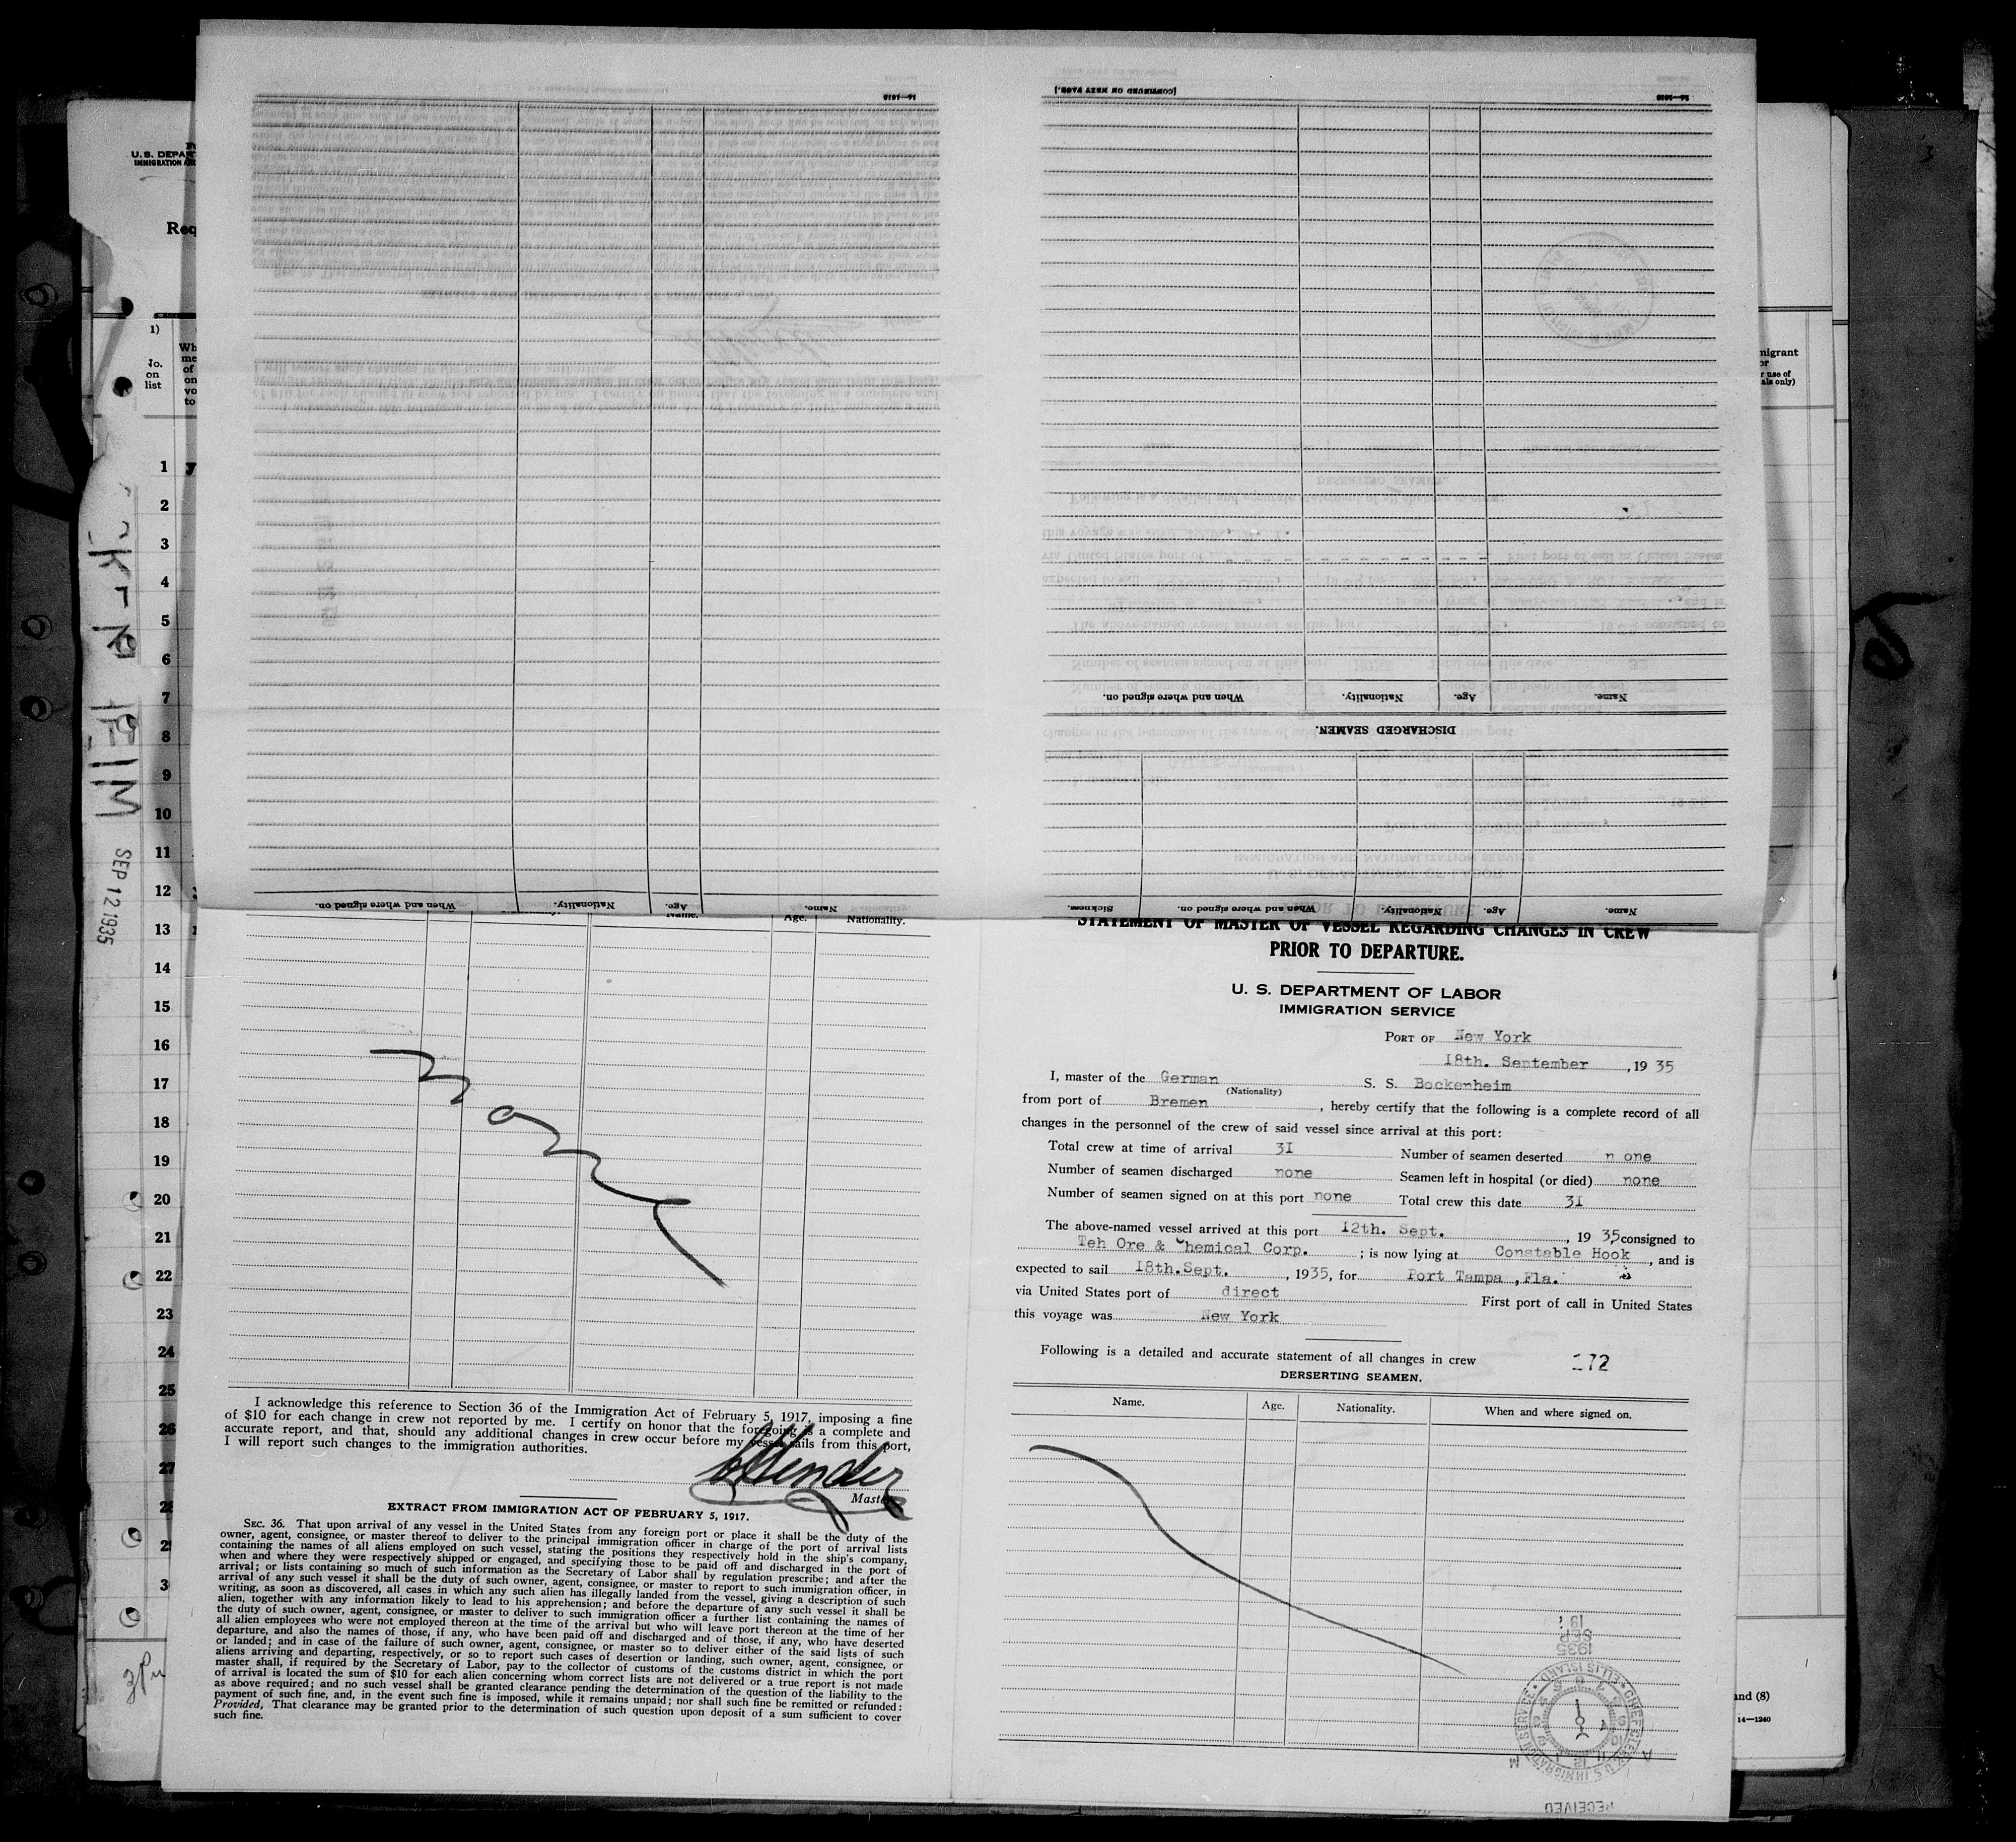 14—1618
[CONTINUED ON NEXT PAGE.]
U. S. DEPAR
IMMIGRATION
Req
1)
No.
on
list
Wh
me
of
on
vo
to
migrant
or
r use of
als only)
1
2
3
4
5
6
7
8
9
10
11
12
13
14
15
16
17
18
19
20
21
22
23
24
25
26
27
SEP 12 1935
Name. Age. Nationality. When and where signed on.
DISCHARGED SEAMEN.
Name. Age. Nationality. When and where signed on. Sickness.
Name. Age. Nationality. When and where signed on.
Name. Age. Nationality.
I acknowledge this reference to Section 36 of the Immigration Act of February 5, 1917, imposing a fine
of $10 for each change in crew not reported by me. I certify on honor that the foregoing is a complete and
accurate report, and that, should any additional changes in crew occur before my vessel sails from this port,
I will report such changes to the immigration authorities.
Master
EXTRACT FROM IMMIGRATION ACT OF FEBRUARY 5, 1917.
SEC. 36. That upon arrival of any vessel in the United States from any foreign port or place it shall be the duty of the
owner, agent, consignee, or master thereof to deliver to the principal immigration officer in charge of the port of arrival lists
containing the names of all aliens employed on such vessel, stating the positions they respectively hold in the ship's company,
when and where they were respectively shipped or engaged, and specifying those to be paid off and discharged in the port of
arrival; or lists containing so much of such information as the Secretary of Labor shall by regulation prescribe; and after the
arrival of any such vessel it shall be the duty of such owner, agent, consignee, or master to report to such immigration officer, in
writing, as soon as discovered, all cases in which any such alien has illegally landed from the vessel, giving a description of such
alien, together with any information likely to lead to his apprehension; and before the departure of any such vessel it shall be
the duty of such owner, agent, consignee, or master to deliver to such immigration officer a further list containing the names of
all alien employees who were not employed thereon at the time of the arrival but who will leave port thereon at the time of her
departure, and also the names of those, if any, who have been paid off and discharged and of those, if any, who have deserted
or landed; and in case of the failure of such owner, agent, consignee, or master so to deliver either of the said lists of such
aliens arriving and departing, respectively, or so to report such cases of desertion or landing, such owner, agent, consignee, or
master shall, if required by the Secretary of Labor, pay to the collector of customs of the customs district in which the port
of arrival is located the sum of $10 for each alien concerning whom correct lists are not delivered or a true report is not made
as above required; and no such vessel shall be granted clearance pending the determination of the question of the liability to the
payment of such fine, and, in the event such fine is imposed, while it remains unpaid; nor shall such fine be remitted or refunded:
Provided, That clearance may be granted prior to the determination of such question upon deposit of a sum sufficient to cover
such fine.
STATEMENT OF MASTER OF VESSEL REGARDING CHANGES IN CREW
PRIOR TO DEPARTURE.
U. S. DEPARTMENT OF LABOR
IMMIGRATION SERVICE
PORT OF New York
18th. September , 19 35
I, master of the German S. S. Bockenheim
(Nationality)
from port of Bremen , hereby certify that the following is a complete record of all
changes in the personnel of the crew of said vessel since arrival at this port:
Total crew at time of arrival 31 Number of seamen deserted n one
Number of seamen discharged none Seamen left in hospital (or died) none
Number of seamen signed on at this port none Total crew this date 31
The above-named vessel arrived at this port 12th. Sept. , 19 35 consigned to
Teh Ore & Chemical Corp. ; is now lying at Constable Hook , and is
expected to sail 18th.Sept. , 1935, for Port Tampa ,Fla.
via United States port of direct First port of call in United States
this voyage was New York
Following is a detailed and accurate statement of all changes in crew 172
DERSERTING SEAMEN.
Name. Age. Nationality. When and where signed on.
1935
SEP
19
CHIEF CLERK U.S. IMMIGRATION SERVICE • ELLIS ISLAND •
A M
RECEIVED
and (8)
14—1240